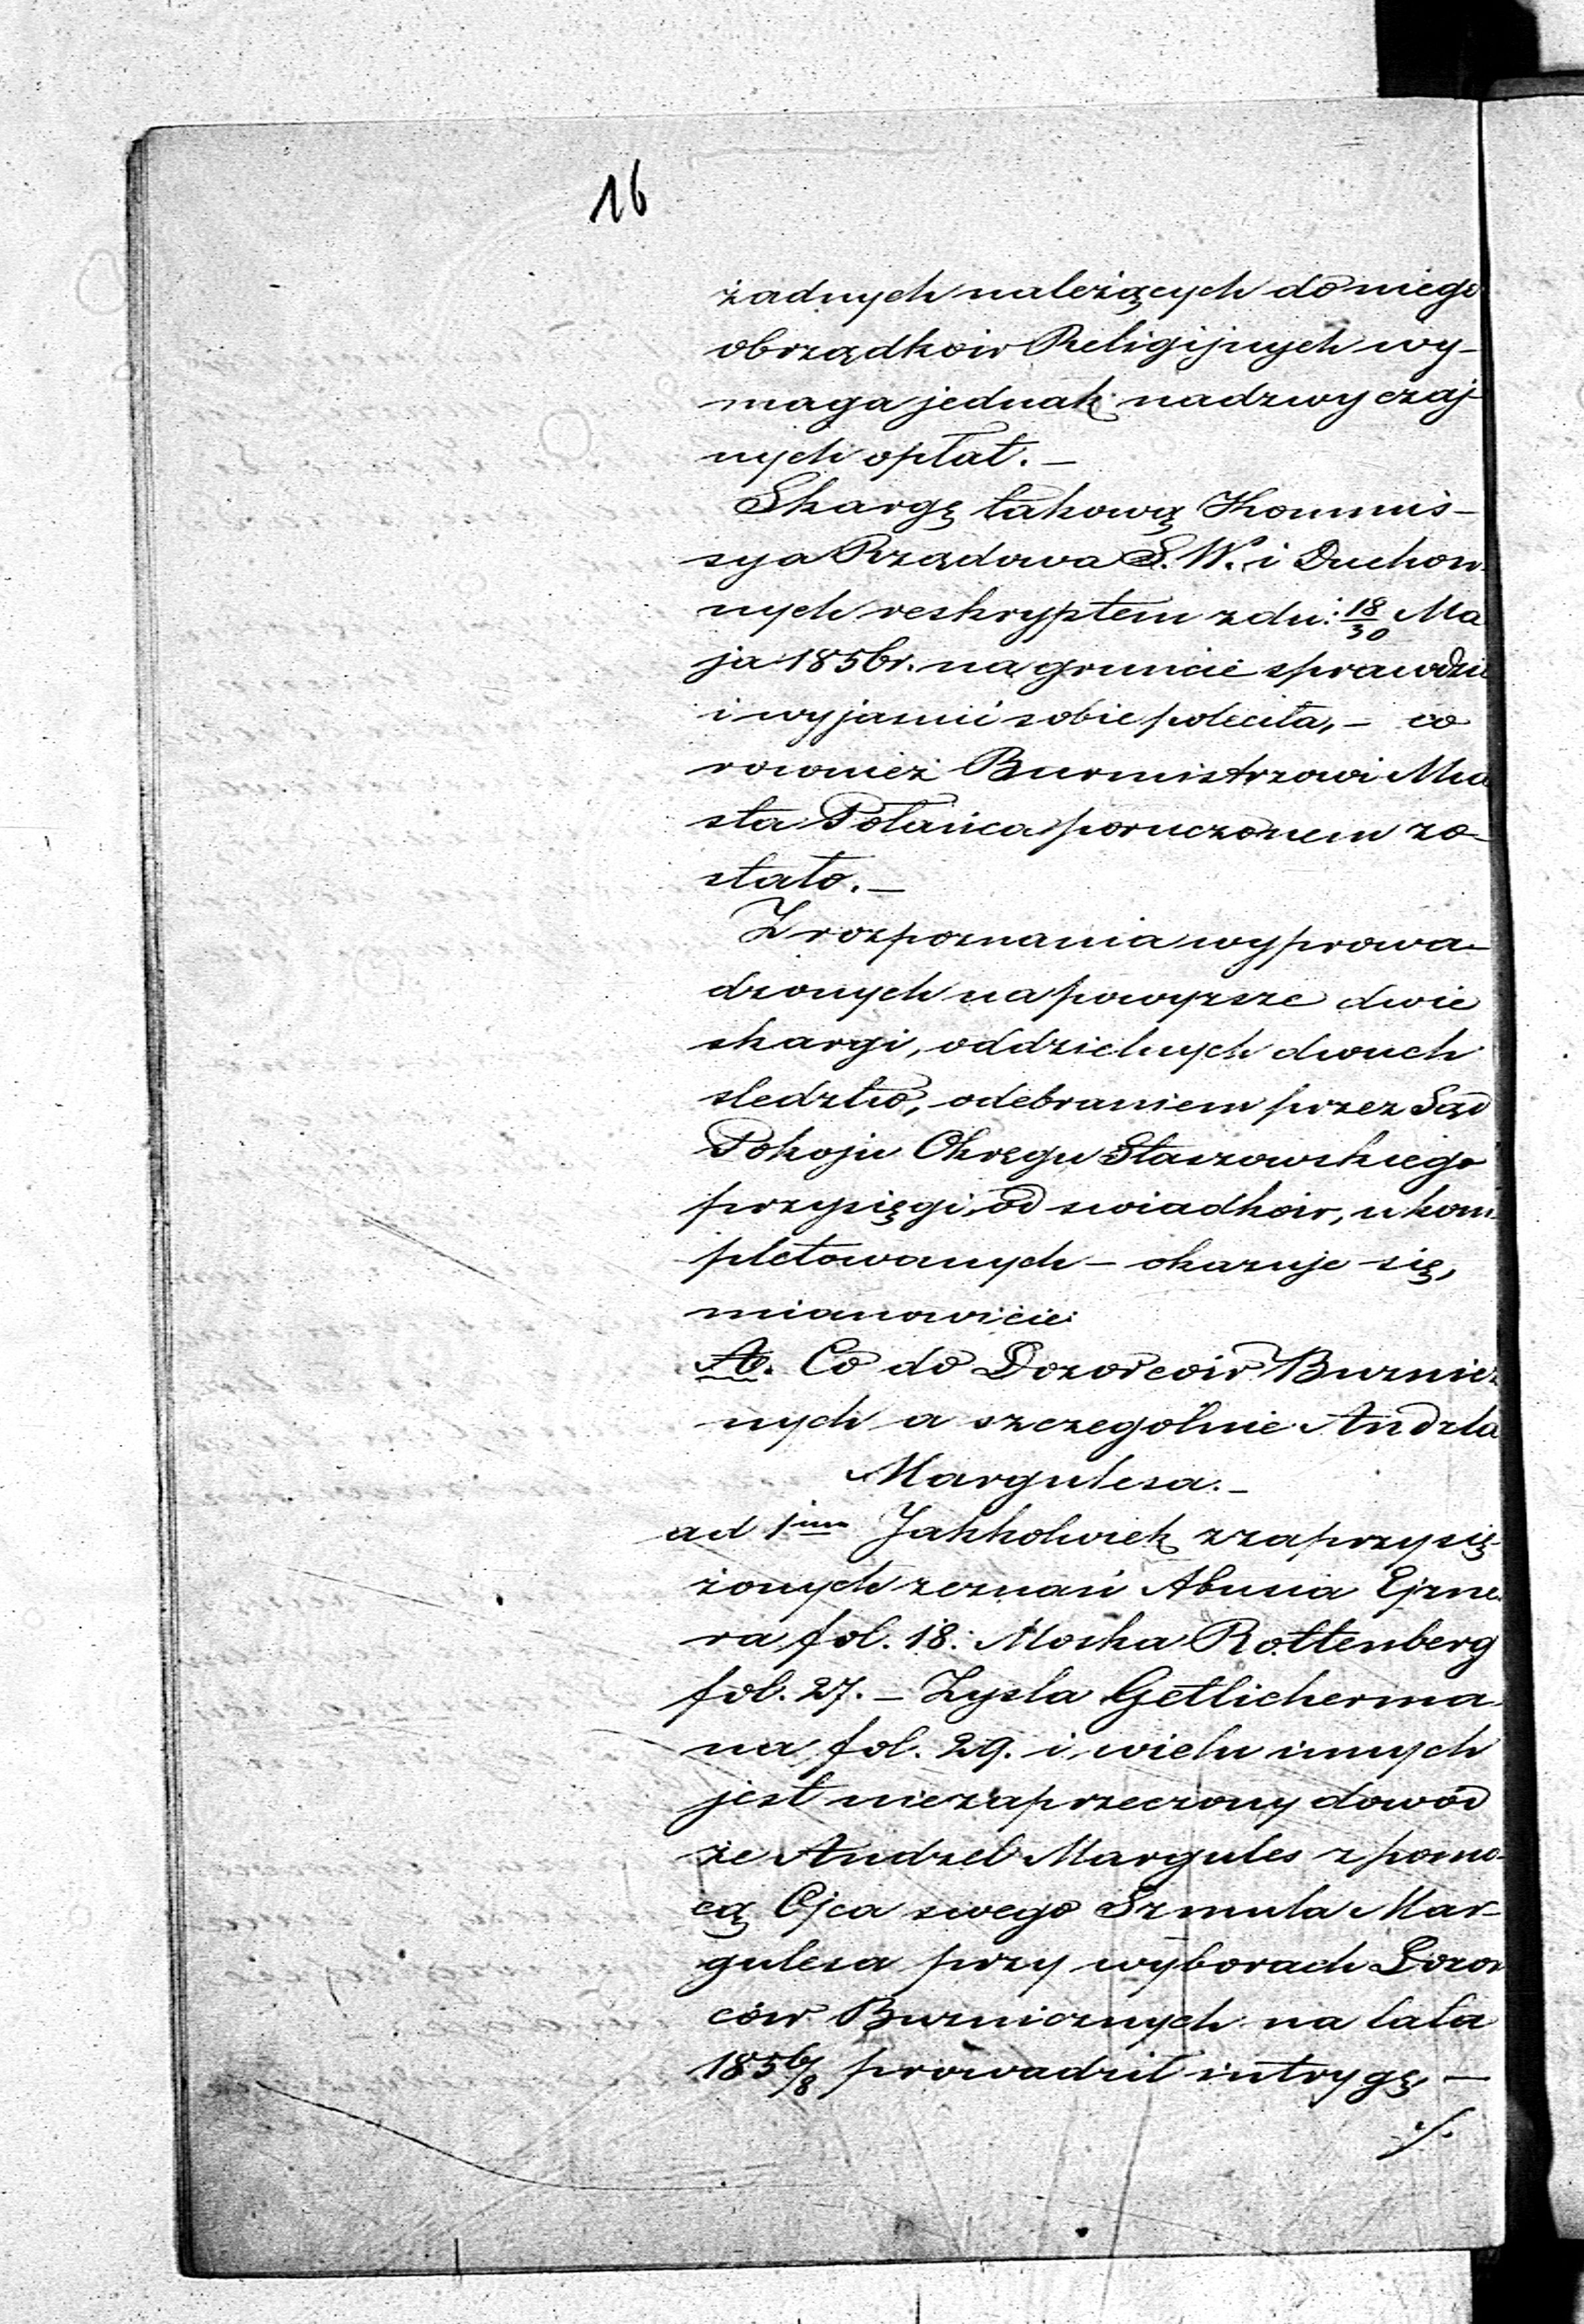 16
żadnych należących do niego
obrządków Religijnych wy-
maga jednak nadzwyczaj-
nych opłat. —
Skargę takową Kommis-
sya Rządowa S. W. i Duchow-
nych reskryptem z dn: 18/30 Ma
ja 1856 r. na gruncie sprawdzić
i wyjaśnić sobie poleciła, — co
również Burmistrzowi Mia
sta Połańca poruczonem zo-
stało. —
Z rozpoznania wyprowa-
dzonych na powyższe dwie
skargi, oddzielnych dwuch
śledztw, odebraniem przez Sąd
Pokoju Okręgu Staszowskiego
przysięgi od świadków, ukom
pletowanych — okazuje się,
mianowicie:
A. Co do Dozorców Bużnicz
nych a szczególnie Andzla
Margulesa. —
ad 1mm Jakkolwiek z zaprzysię-
żonych zeznań Abusia Ejzne
ra fol. 18: Moska Rottenberg
fol. 27. — Zysla Getlicherma
na fol. 29. i wielu innych
jest niezaprzeczony dowód
że Andzel Margules z pomo-
cą Ojca swego Szmula Mar-
gulesa przy wyborach Dozor
ców Bużnicznych na lata
1856/8 prowadził intrygę, —
./.